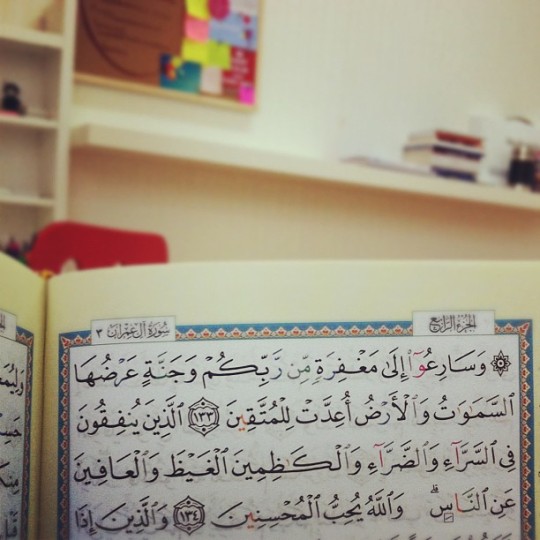 سورة آل عمران ٣
الجزء الرابع
۞ وَسَارِعُوٓا۟ إِلَىٰ مَغْفِرَةٍ مِّن رَّبِّكُمْ وَجَنَّةٍ عَرْضُهَا
ٱلسَّمَٰوَٰتُ وَٱلْأَرْضُ أُعِدَّتْ لِلْمُتَّقِينَ ١٣٣ ٱلَّذِينَ يُنفِقُونَ
فِى ٱلسَّرَّآءِ وَٱلضَّرَّآءِ وَٱلْكَٰظِمِينَ ٱلْغَيْظَ وَٱلْعَافِينَ
عَنِ ٱلنَّاسِ ۗ وَٱللَّهُ يُحِبُّ ٱلْمُحْسِنِينَ ١٣٤ وَٱلَّذِينَ إِذَا